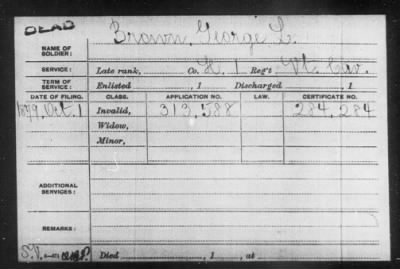 DEAD
NAME OF SOLDIER: Brown, George L.
SERVICE: Late rank, Co. H. 1 Reg't Vt. Cav.
TERM OF SERVICE: Enlisted , 1 Discharged , 1
DATE OF FILING. CLASS. APPLICATION NO. LAW. CERTIFICATE NO.
1879, Oct. 1 Invalid, 313,588 284,284
Widow,
Minor,
ADDITIONAL SERVICES:
REMARKS:
Died , 1 , at